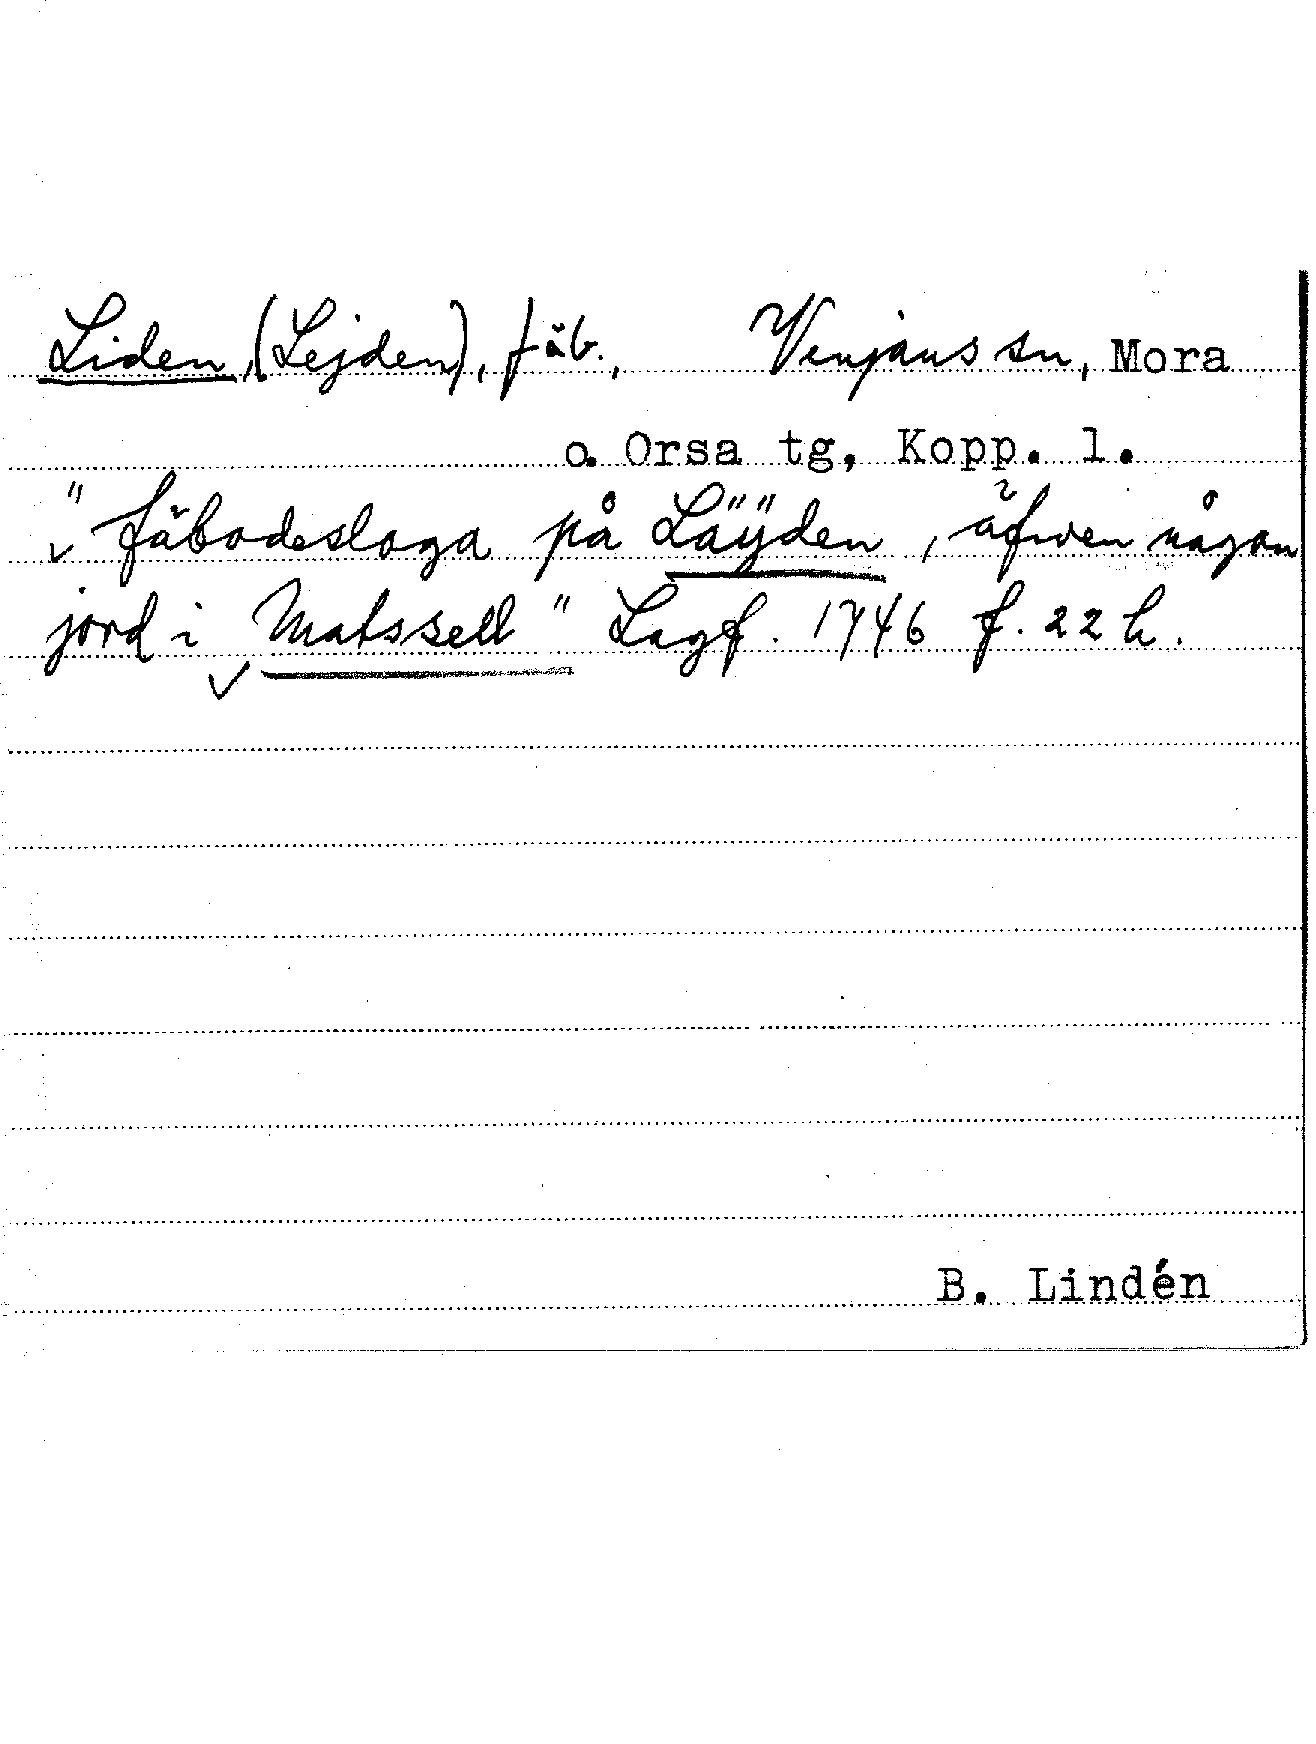 Liden, (Lejden), fäb., Venjans sn, Mora
o. Orsa tg, Kopp. l.
"fäbodesloga på Läÿden, äfwen någon
jord i Matssell" Lagf. 1746 f. 22 h.
B. Lindén